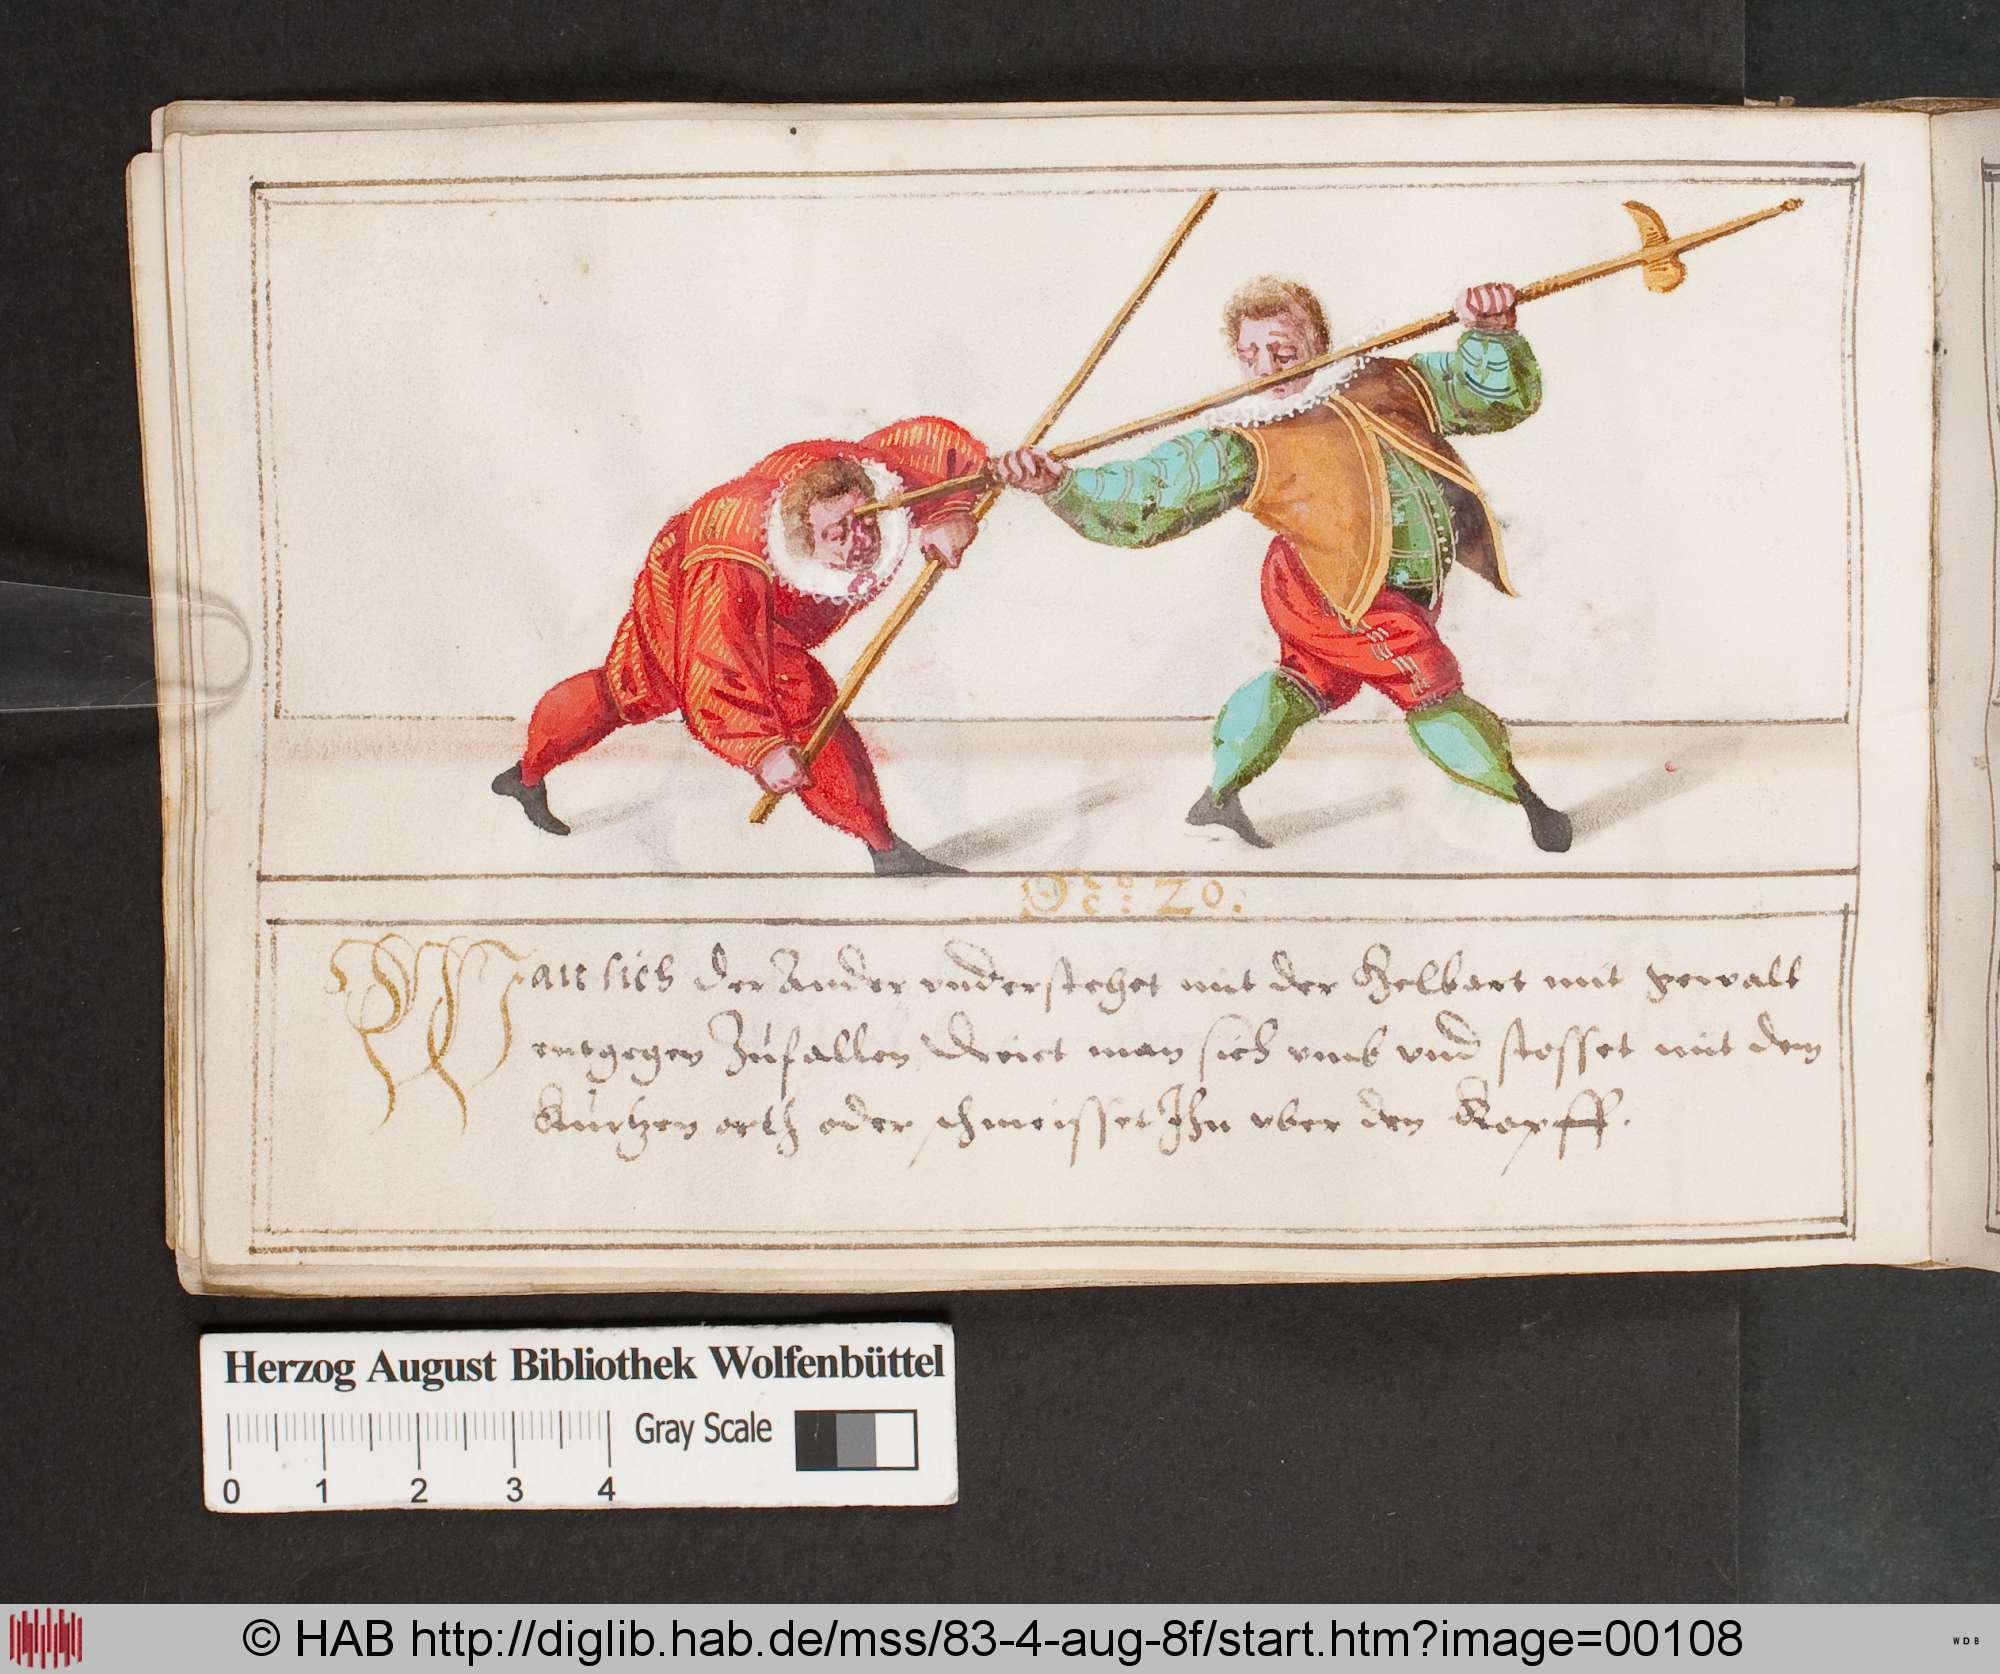 No: 20.
Wan sich der Ander understehet mit der Helbart mit gewalt
entgegen Zufallen Verirt man sich umb und stosset mit dem
Kurtzen orth oder schmeisset Ihn uber den Kopff.
Herzog August Bibliothek Wolfenbüttel
Gray Scale
0 1 2 3 4
© HAB http://diglib.hab.de/mss/83-4-aug-8f/start.htm?image=00108
WDB